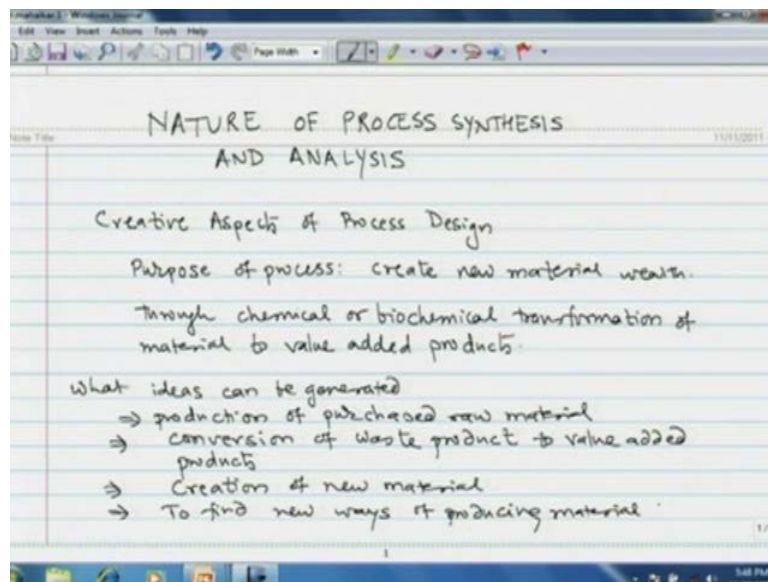 Windows Journal
Edit View Insert Actions Tools Help
Page Width
Note Title
11/11/2011
NATURE OF PROCESS SYNTHESIS
AND ANALYSIS
Creative Aspects of Process Design
Purpose of process: create new material wealth.
through chemical or biochemical transformation of
material to value added products.
What ideas can be generated
⇒ production of purchased raw material
⇒ conversion of waste product to value added
products
⇒ Creation of new material
⇒ To find new ways of producing material
1/
1
5:48 PM